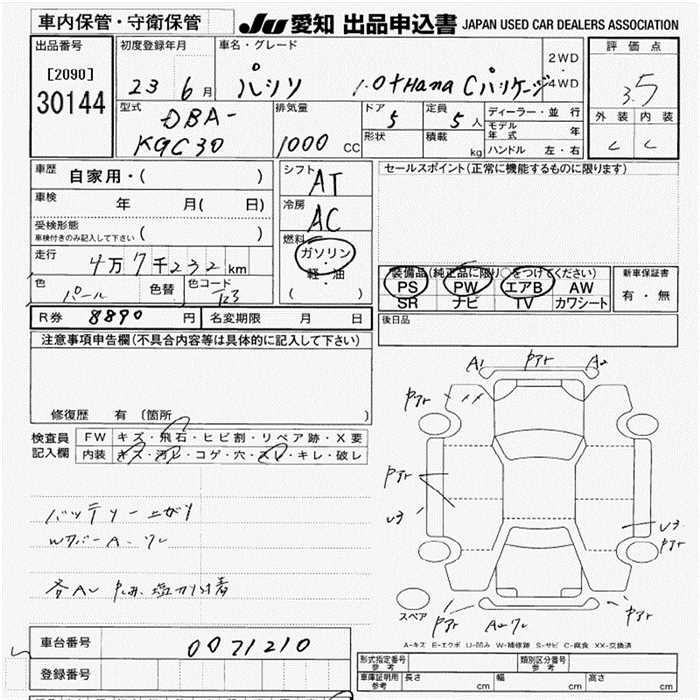 車内保管・守衛保管 JU 愛知 出品申込書 JAPAN USED CAR DEALERS ASSOCIATION
出品番号 初度登録年月 車名・グレード 2WD 評価点
[2090] 23 6月 パッソ 1.0+Hana Cパッケージ ・4WD 3.5
30144 型式 排気量 ドア 定員 ディーラー・並行 外装 内装
DBA- 5 5人 モデル年式 年
KGC30 1000 CC 形状 積載 kg ハンドル 左・右 C C
車歴 自家用・( ) シフト AT セールスポイント(正常に機能するものに限ります)
車検 年 月( 日) 冷房 AC
受検形態 ( )
車検付きのみ記入して下さい
燃料 ガソリン・軽・油 ( )
走行 4万7千232km
装備品(純正品に限り○をつけてください) 新車保証書
色 パール 色替 色コード PS PW エアB AW 有・無
SR ナビ TV カワシート
R券 8890円 名変期限 月 日 後日品
注意事項申告欄(不具合内容等は具体的に記入して下さい)
修復歴 有 (箇所 )
A1 A2
検査員 FW キズ・飛石・ヒビ割・リペア跡・X要
記入欄 内装 キズ・汚レ・コゲ・穴・スレ・キレ・破レ
U3 U3
バッテリー上がり
スペア
車台番号 0071210
A-キズ E-エクボ U-凹み W-補修跡 S-サビ C-腐食 XX-交換済
登録番号 形式指定番号 参考 類別区分番号 参考
車庫証明用 参考 長さ cm 幅 cm 高さ cm